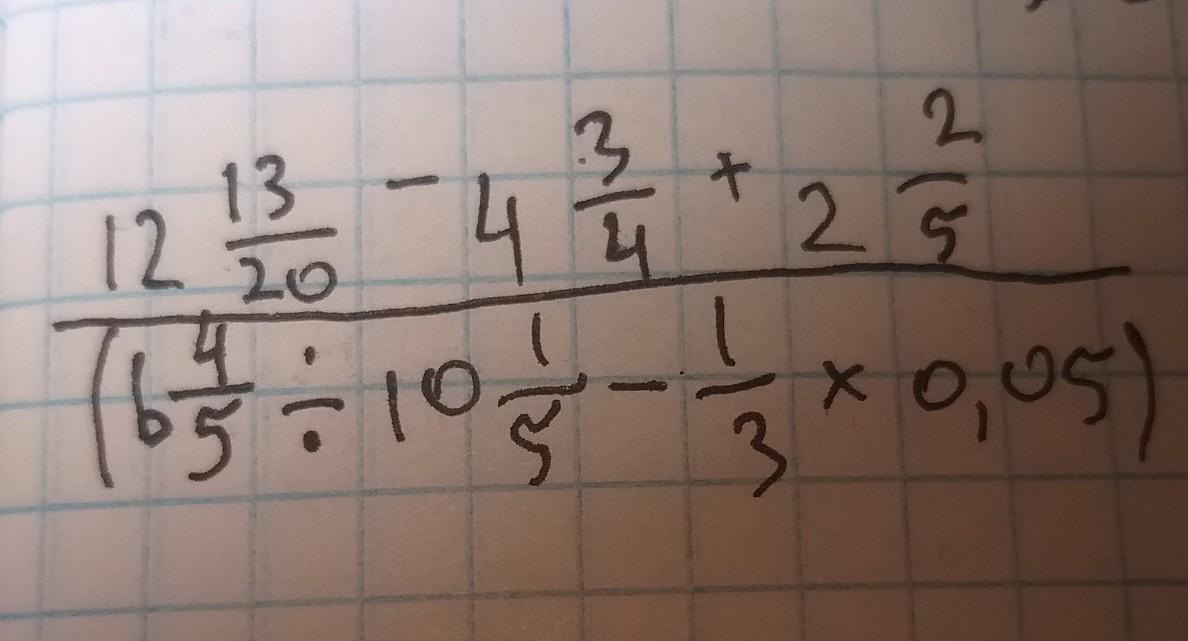 12 13/20 - 4 3/4 + 2 2/5
(6 4/5 ÷ 10 1/5 - 1/3 × 0,05)